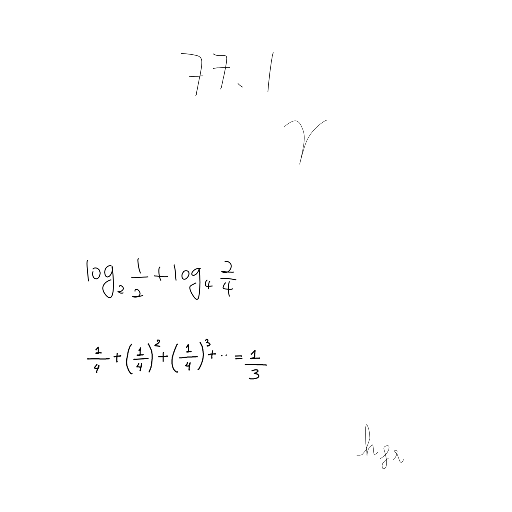 77.1
γ
log_2 1/2 + log_4 2/4
1/4 + (1/4)^2 + (1/4)^3 + ·· = 1/3
h_{gx}